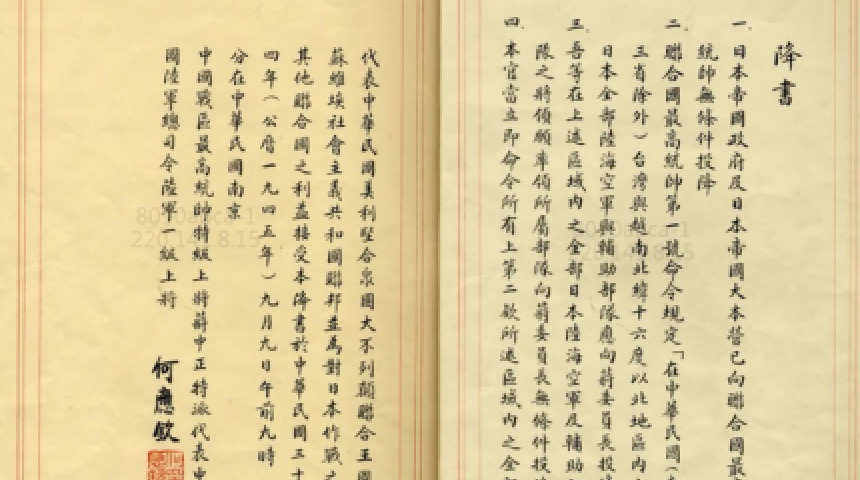 降書
一、日本帝國政府及日本帝國大本營已向聯合國最
統帥無條件投降
二、聯合國最高統帥第一號命令規定「在中華民國(
三省除外)台灣與越南北緯十六度以北地區內
日本全部陸海空軍與輔助部隊應向蔣委員長投
三、吾等在上述區域內之全部日本陸海空軍及輔助
隊之將領願率領所屬部隊向蔣委員長無條件投
四、本官當立即命令所有上第二款所述區域內之全
代表中華民國美利堅合衆國大不列顛聯合王國
蘇維埃社會主義共和國聯邦並為對日本作戰之
其他聯合國之利益接受本降書於中華民國三十
四年(公曆一九四五年)九月九日午前九時
分在中華民國南京
中國戰區最高統帥特級上將蔣中正特派代表中
國陸軍總司令陸軍一級上將
何應欽